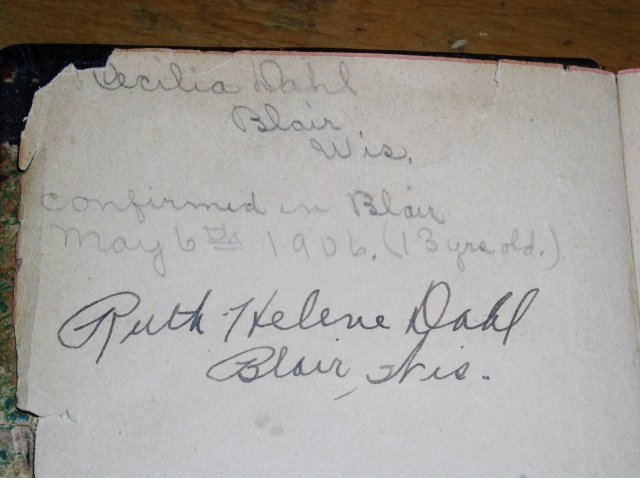 Cecilia Dahl
Blair
Wis.
confirmed in Blair
May 6th 1906. (13 yrs old.)
Ruth Helene Dahl
Blair, Wis.